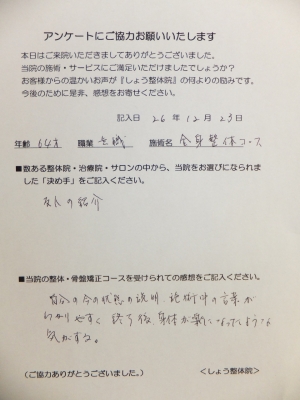 アンケートにご協力お願いいたします
本日はご来院いただきましてありがとうございました。
当院の施術・サービスにご満足いただけましたでしょうか?
お客様からの温かいお声が『しょう整体院』の何よりの励みです。
今後のために是非、感想をお寄せください。
記入日 26年12月23日
年齢 64才 職業 無職 施術名 全身整体コース
■数ある整体院・治療院・サロンの中から、当院をお選びになられました「決め手」をご記入ください。
友人の紹介
■当院の整体・骨盤矯正コースを受けられての感想をご記入ください。
自分の今の状態の説明、施術中の言葉が
わかりやすく 終了後、身体が楽になっているような
気がする。
(ご協力ありがとうございました。) <しょう整体院>